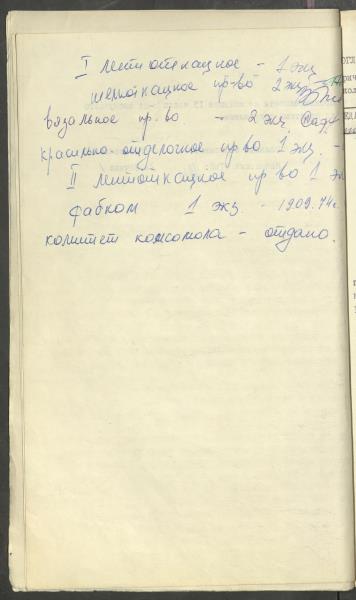 I лентоткацкое - 1 экз
шелкоткацкое пр-во 2 экз
вязальное пр-во - 2 экз.
красильно-отделочное пр-во 1 экз. -
II лентоткацкое пр-во 1 эк
фабком 1 экз. - 19.09.74г.
комитет комсомола - отдано.